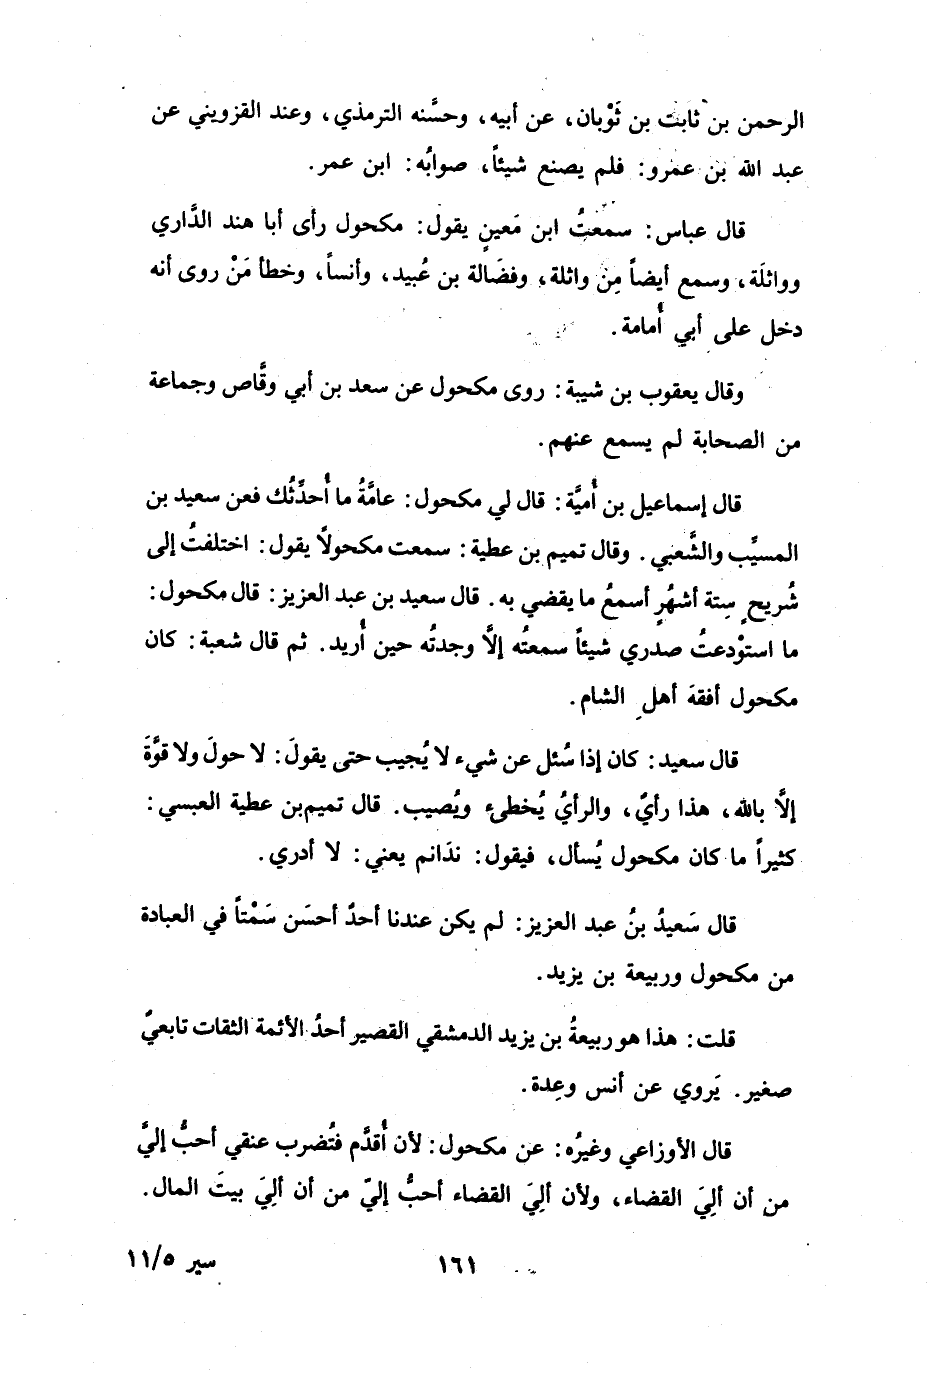 الرحمن بن ثابت بن ثَوْبان، عن أبيه، وحسَّنه الترمذي، وعند القزويني عن
عبد الله بن عمرو: فلم يصنع شيئاً، صوابُه: ابن عمر.
قال عباس: سمعتُ ابن مَعينٍ يقول: مكحول رأى أبا هند الدَّاري
وواثلَة، وسمع أيضاً مِنْ واثلة، وفضَالة بن عُبيد، وأنساً، وخطأ مَنْ روى أنه
دخل على أبي أُمامة.
وقال يعقوب بن شيبة: روى مكحول عن سعد بن أبي وقَّاص وجماعة
من الصحابة لم يسمع عنهم.
قال إسماعيل بن أُميَّة: قال لي مكحول: عامَّةُ ما أُحدِّثُك فعن سعيد بن
المسيَّب والشَّعبي. وقال تميم بن عطية: سمعت مكحولاً يقول: اختلفتُ إلى
شُريحٍ سِتة أشهُرٍ أسمعُ ما يقضي به. قال سعيد بن عبد العزيز: قال مكحول:
ما استوْدعتُ صدري شيئاً سمعتُه إلَّا وجدتُه حين أُريد. ثم قال شعبة: كان
مكحول أفقهَ أهلِ الشام.
قال سعيد: كان إذا سُئل عن شيء لا يُجيب حتى يقولَ: لا حولَ ولا قوَّةَ
إلَّا بالله، هذا رأيٌ، والرأيُ يُخطىء ويُصيب. قال تميم بن عطية العبسي:
كثيراً ما كان مكحول يُسأل، فيقول: ندَانم يعني: لا أدري.
قال سَعيدُ بنُ عبد العزيز: لم يكن عندنا أحدٌ أحسَن سَمْتاً في العبادة
من مكحول وربيعة بن يزيد.
قلت: هذا هو ربيعةُ بن يزيد الدمشقي القصير أحدُ الأئمة الثقات تابعيٌ
صغير. يَروي عن أنس وعِدة.
قال الأوزاعي وغيرُه: عن مكحول: لأن أُقدَّم فتُضرب عنقي أحبُّ إليَّ
من أن ألِيَ القضاء، ولأن ألِيَ القضاء أحبُّ إليّ من أن ألِيَ بيتَ المال.
١٦١
سير ٥/١١